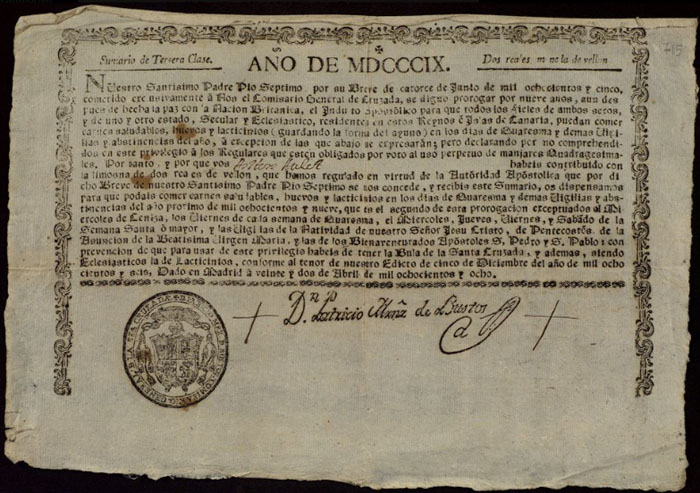 Sumario de Tersera Clase. AÑO DE MDCCCIX. Dos reales moneda de vellon
NUestro Santisimo Padre Pio Septimo por su Breve de catorce de Junio de mil ochocientos y cinco,
cometido exclusivamente á Nos el Comisario General de Cruzada, se digno prorogar por nueve años, aun des
pues de hecha la paz con la Nacion Britanica, el Indulto Apostólico para que todos los fieles de ambos sexôs,
y de uno y otro estado, Secular y Eclesiastico, residentes en estos Reynos é Islas de Canaria, puedan comer
carnes saludables, huevos y lacticinios (guardando la forma del ayuno) en los dias de Quaresma y demas Vigi-
lias y abstinencias del año, à excepcion de las que abajo se expresarán; pero declarando por no comprehendi-
dos en este privilegio à los Regulares que estén obligados por voto al uso perpetuo de manjares Quadragesima-
les. Por tanto, y por que vos habeis contribuido con
la limosna de dos reales de vellon, que hemos regulado en virtud de la Autóridad Apostolica que por di
cho Breve de nuestro Santisimo Padre Pio Septimo se nos concede, y recibis este Sumario, os dispensamos
para que podais comer carnes saludables, huevos y lacticinios en los dias de Quaresma y demas Vigilias y abs-
tinencias del año proximo de mil ochocientos y nueve, que es el segundo de esta prorogacion exceptuados el Mi
ercoles de Ceniza, los Viernes de cada semana de Quaresma, el Miercoles, Jueves, Viernes, y Sabado de la
Semana Santa ó mayor, y las Vigilias de la Natividad de nuestro Señor Jesu Cristo, de Pentecostés. de la
Asuncion de la Beatisima Virgen Maria, y las de los Bienaventurados Apóstoles S. Pedro y S. Pablo: con
prevencion de que para usar de este privilegio habeis de tener la Bula de la Santa Cruzada, y ademas, siendo
Eclesiasticos la de Lacticinios, conforme al tenor de nuestro Edicto de cinco de Diciembre del año de mil ocho
cientos y seis, Dado en Madrid à veinte y dos de Abril de mil ochocientos y ocho.
Dn Patricio Mrnz de Bustos